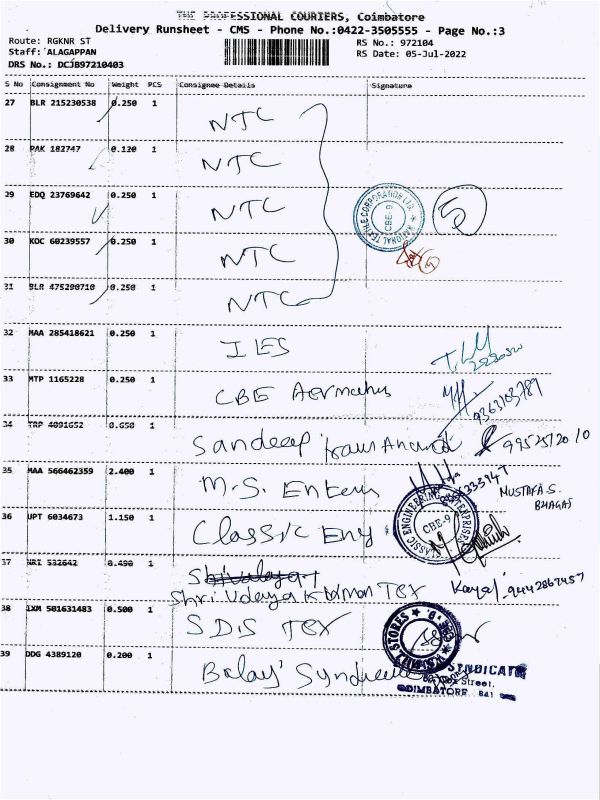 THE PROFESSIONAL COURIERS, Coimbatore
Delivery Runsheet - CMS - Phone No.:0422-3505555 - Page No.:3
Route: RGKNR ST
RS No.: 972104
Staff: ALAGAPPAN
RS Date: 05-Jul-2022
DRS No.: DCJB97210403
S No Consignment No Weight PCS Consignee Details Signature
27 BLR 215230538 0.250 1 NTC
28 PAK 182747 0.120 1 NTC
29 EDQ 23769642 0.250 1 NTC
NATIONAL TEXTILE CORPORATION LTD.
CBE-9
5
30 KOC 60239557 0.250 1 NTC
31 BLR 475290710 0.250 1 NTC
32 MAA 285418621 0.250 1 IES
33 MTP 1165228 0.250 1 CBE
9363103789
34 TRP 4091652 0.650 1 Sandeep
35 MAA 566462359 2.400 1 M.S. Enter
MUSTAFA S.
BHAGAT
36 UPT 6034673 1.150 1 Classic Eng
CLASSIC ENGINEERING ENTERPRISES
CBE-9
37 532642 0.490 1
Shri Udaya Tex
9442867457
38 IXM 501631483 0.500 1 SDS TEX
STORES
39 DDG 4389120 0.200 1 Balaji Syndicate
SYNDICATE
Street,
COIMBATORE 641